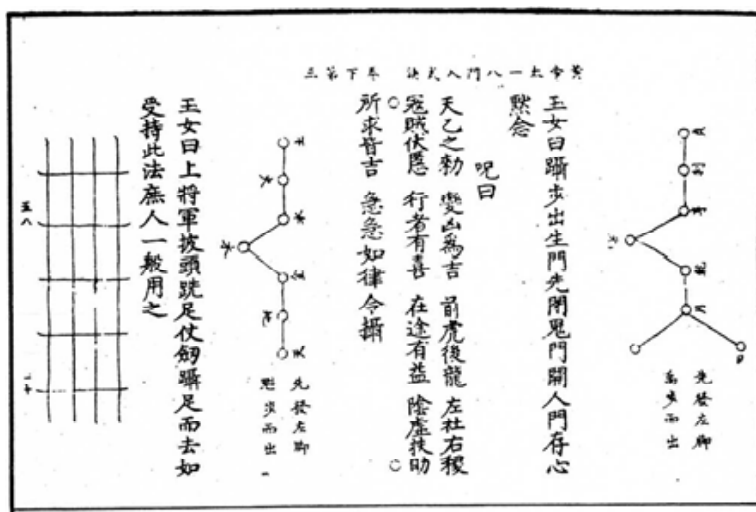 黃帝太一八門入式訣 卷下第三
先發左脚
禹步而出
玉女曰躡步出生門先閉鬼門開人門存心
黙念
呪曰
天乙之勑 變凶為吉 前虎後龍 左社右稷
寇賊伏匿 行者有喜 在途有益 陰虛扶助
所求皆吉 急急如律令攝
先發左脚
步而出
玉女曰上將軍披頭跣足仗劒躡足而去如
受持此法庶人一般用之
五八